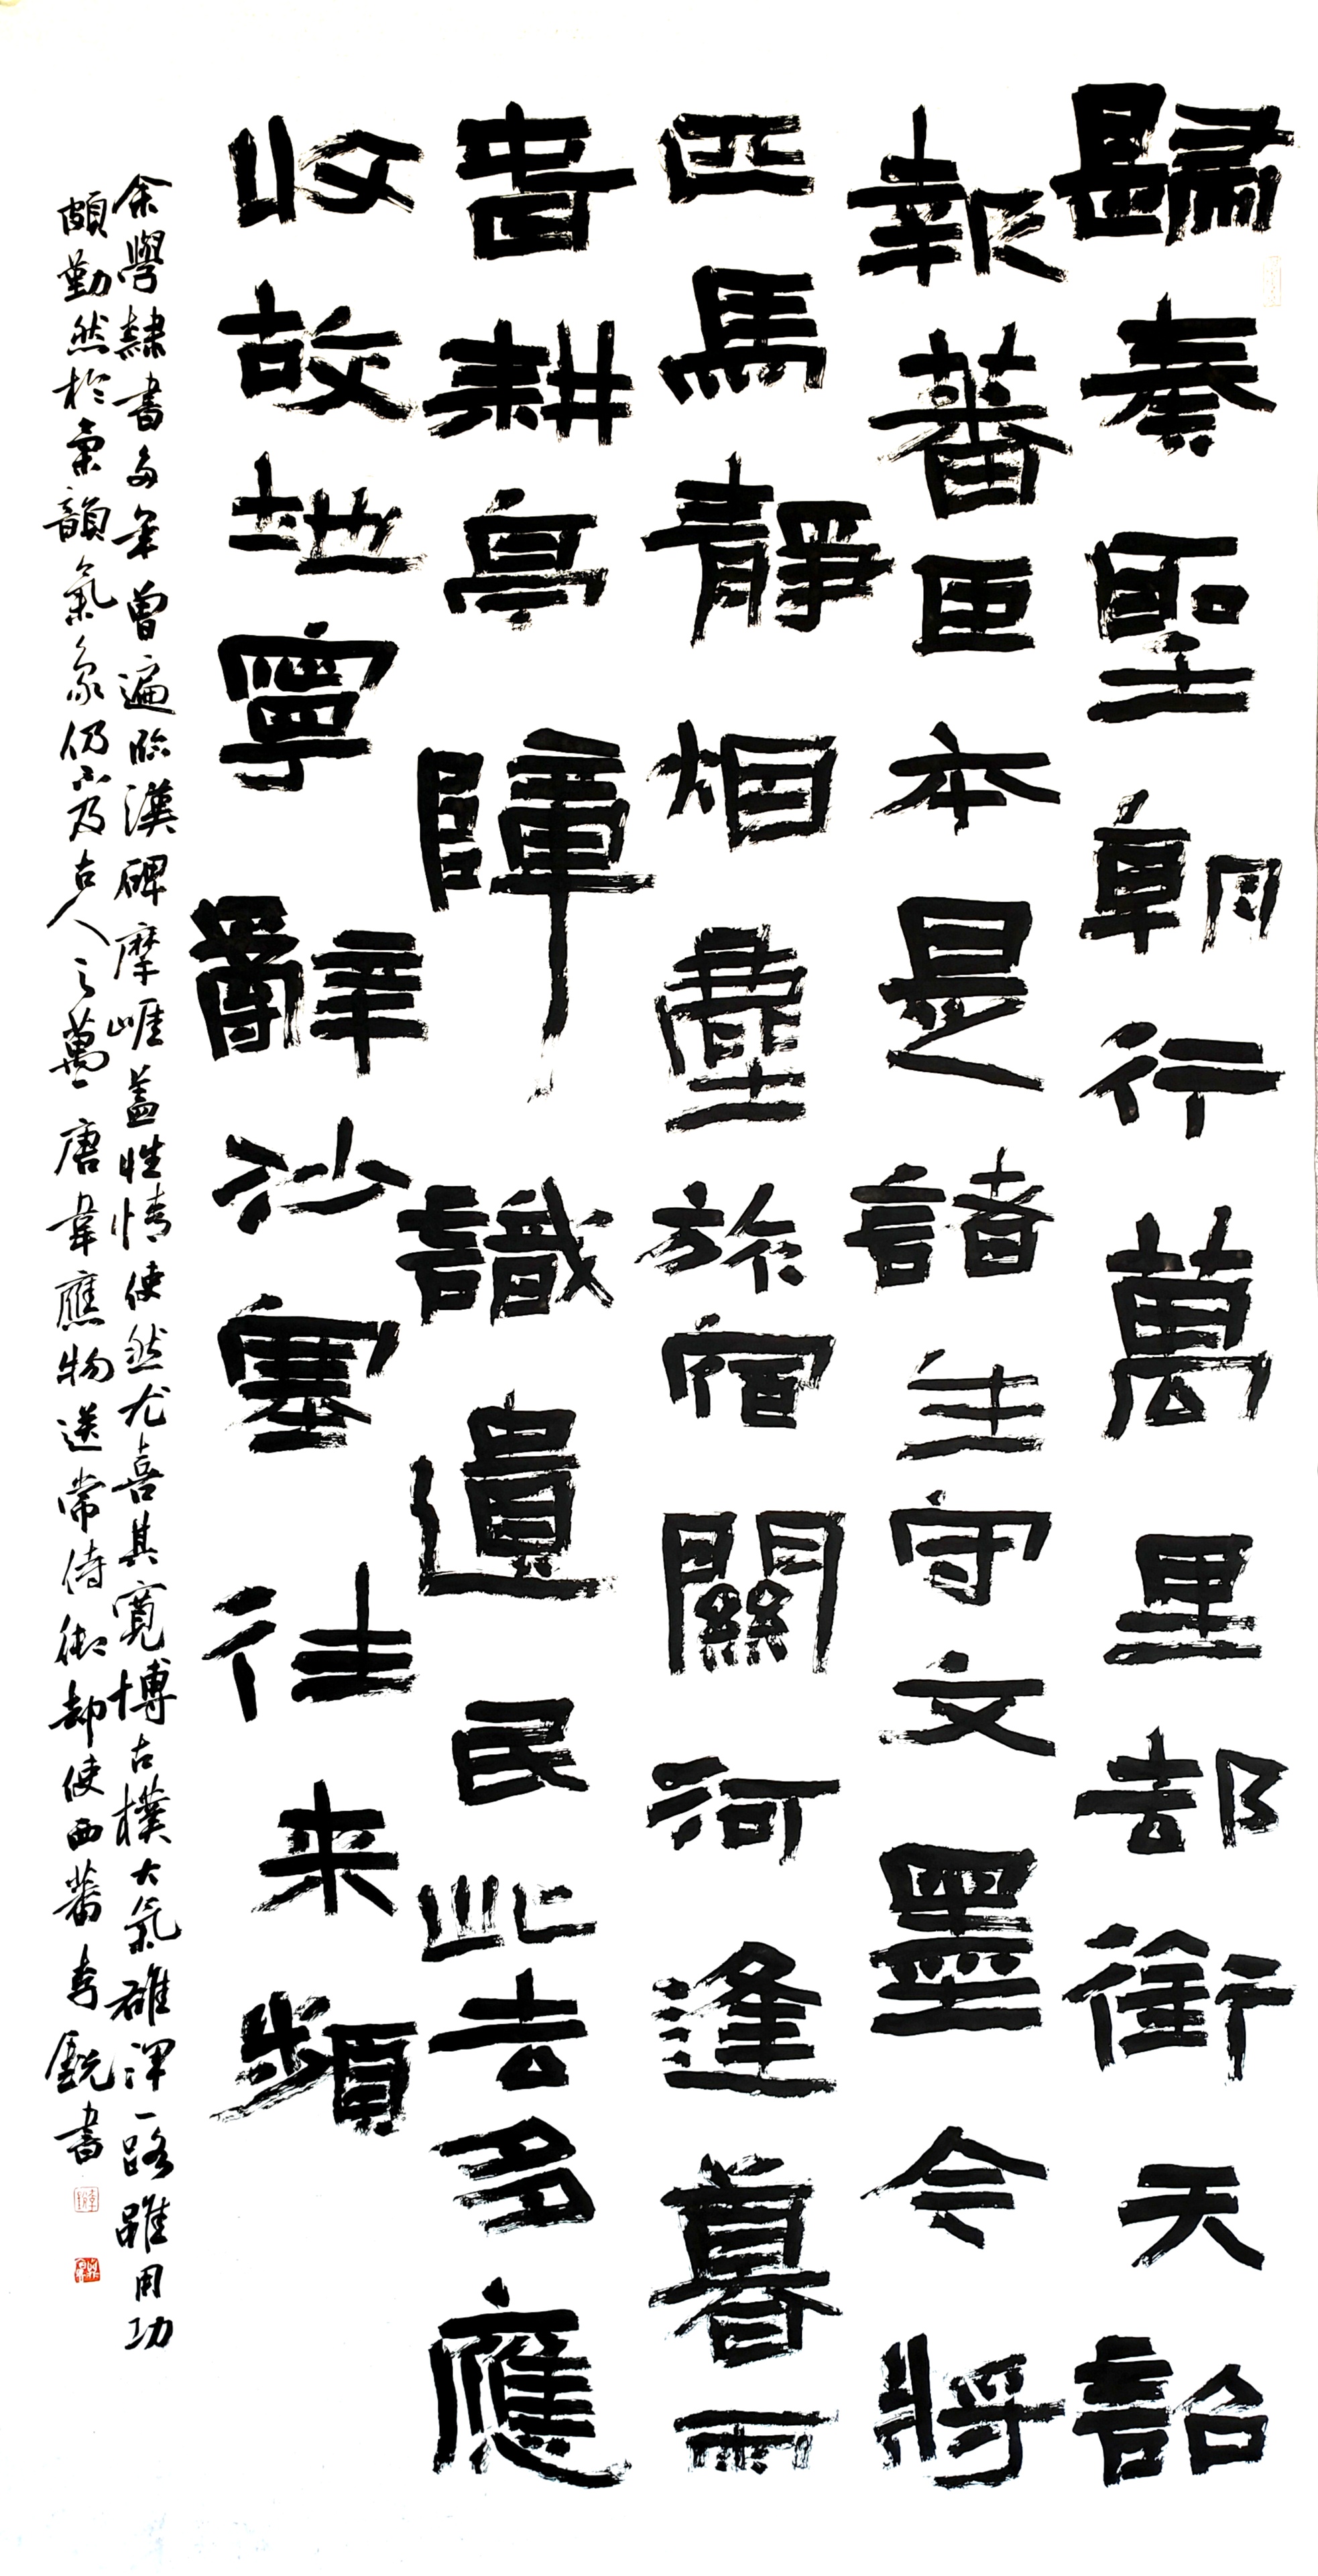 歸奏聖朝行萬里却銜天詔
報蕃臣本是諸生守文墨今將
匹馬靜烟塵旅宿關河逢暮雨
春耕亭障識遺民此去多應
收故地寧辭沙塞往来頻
余學隸書多年曾遍臨漢碑摩崖蓋性情使然尤喜其寬博古樸大氣雄渾一路雖用功
頗勤然於氣韻氣象仍不及古人之萬一唐韋應物送常侍御却使西蕃李銳書